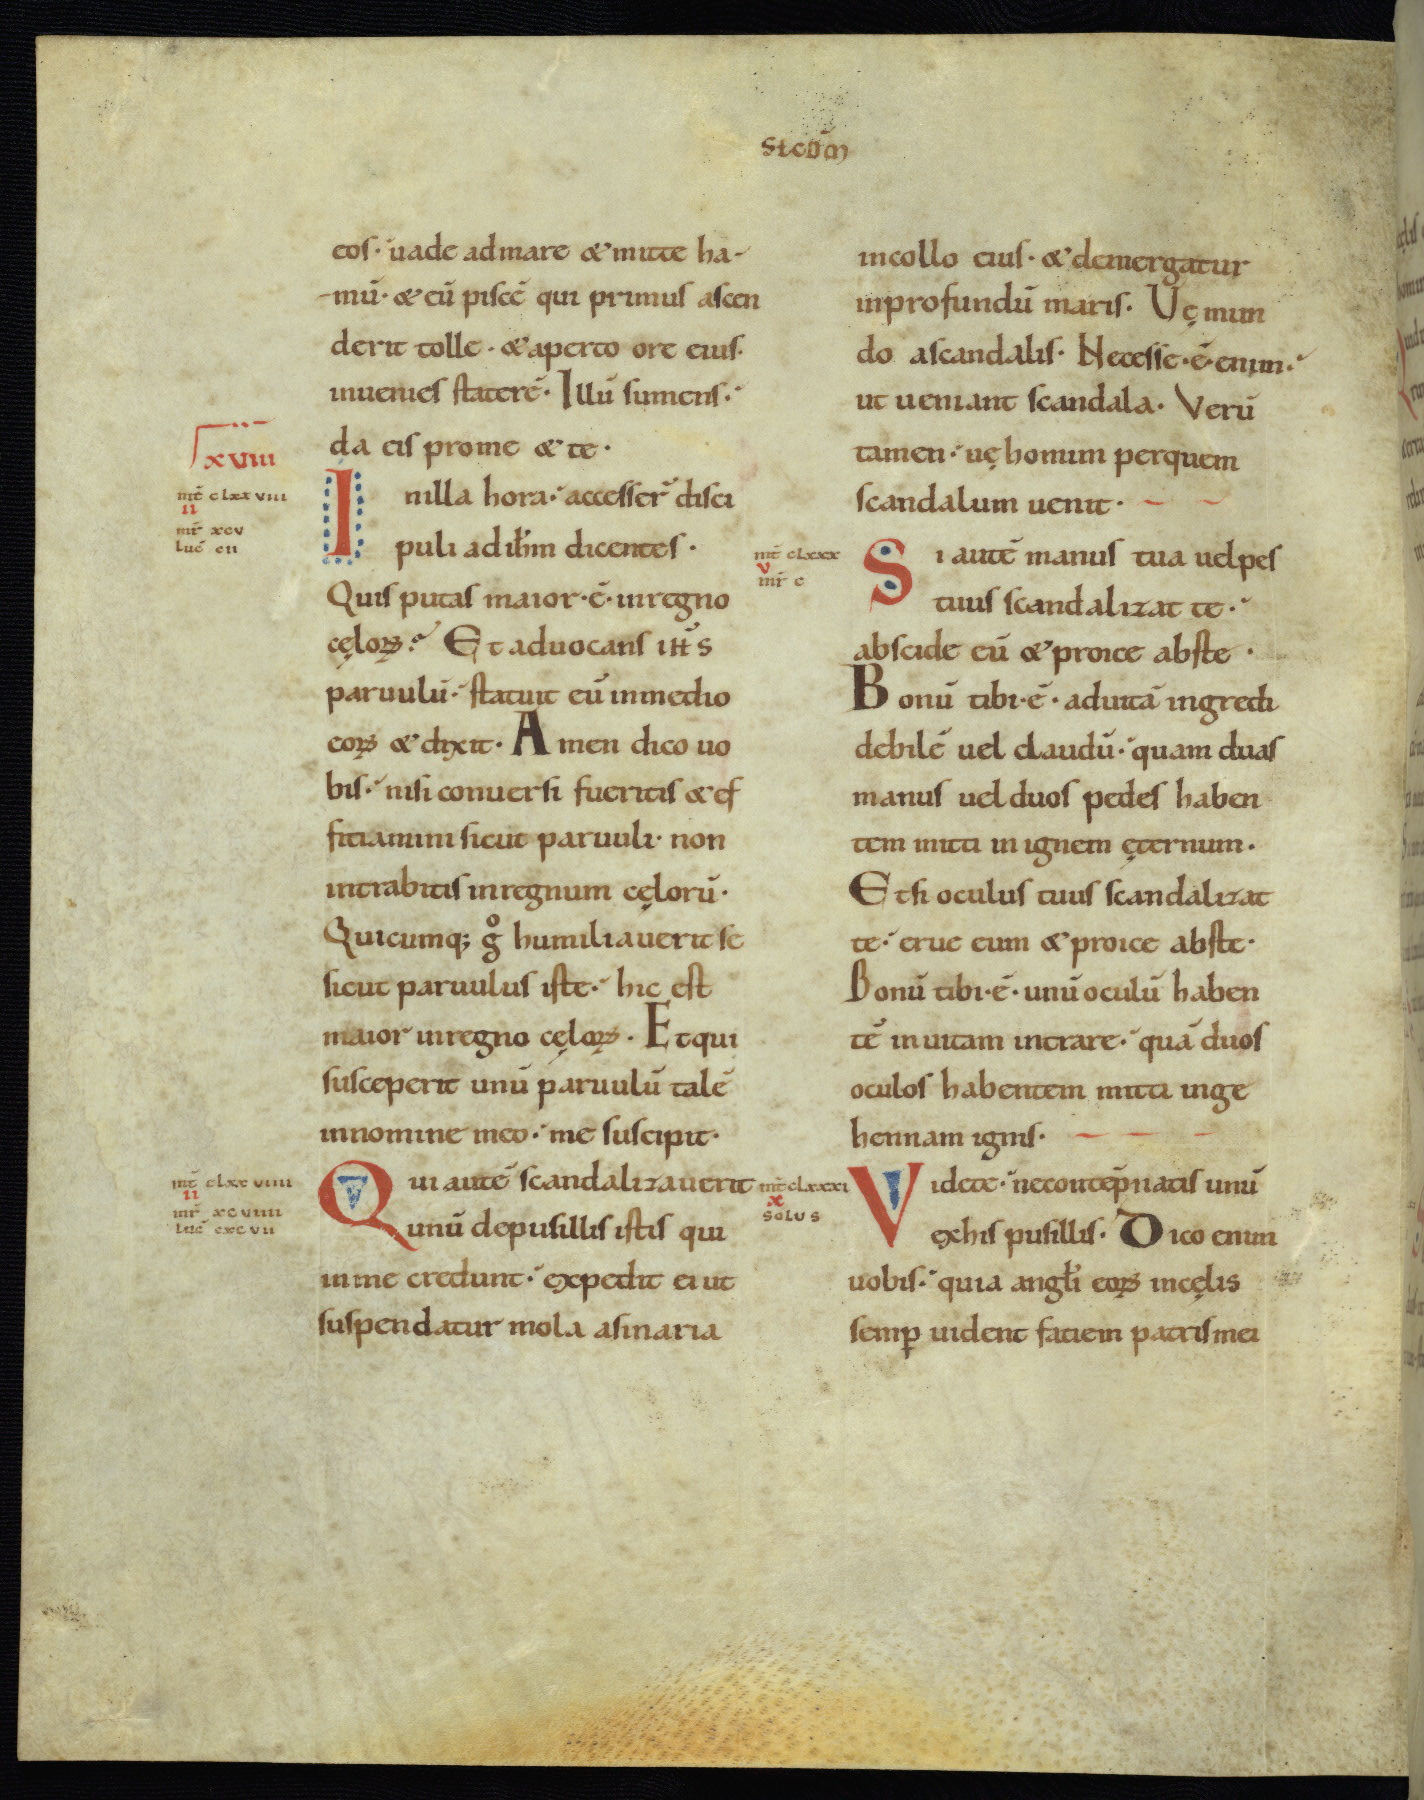 SCDM
eos· uade admare & mitte ha-
-mū· & eū piscē qui primus ascen
derit tolle· & aperto ore eius·
inuenies staterē· Illū sumens·
da eis prome & te·
xviii
mt̄ clxxviii
ii
mr̄ xcv
luc̄ cii
I nilla hora· accesser̄ disci
puli adih̄m dicentes·
Quis putas maior·ē·inregno
cęloꝝ? Et aduocans ih̄s
paruulū· statuit eū inmedio
eoꝝ & dixit· Amen dico uo
bis· nisi conuersi fueritis & ef
fitiamini sicut paruuli· non
intrabitis inregnum cęlorū·
Quicumq; gͦ humiliauerit se
sicut paruulus iste· hic est
maior inregno cęloꝝ· Et qui
susceperit unū paruulū talē
innomine meo· me suscipit·
mt̄ clxxviiii
ii
mr̄ xcviiii
luc̄ cxcvii
Qui autē scandalizauerit
unū depusillis istis qui
inme credunt· expedit ei ut
suspendatur mola asinaria
incollo eius· & demergatur
inprofundū maris· Vę mun
do ascandalis· Necesse·ē·enim·
ut ueniant scandala· Verū
tamen· uę homini perquem
scandalum uenit·
mt̄ clxxx
v
mr̄ c
Si autē manus tua uel pes
tuus scandalizat te·
abscide eū & proice abste·
Bonū tibi·ē· aduitā ingredi
debilē uel claudū· quam duas
manus uel duos pedes haben
tem mitti in ignem ęternum·
Et si oculus tuus scandalizat
te· erue eum & proice abste·
Bonū tibi·ē· unū oculū haben
tē inuitam intrare· quā duos
oculos habentem mitti inge
hennam ignis·
mt̄ clxxxi
x
SOLUS
Videte· necontēpnatis unū
exhis pusillis· Dico enim
uobis· quia angl̄i eoꝝ incęlis
semꝑ uident fatiem patris mei